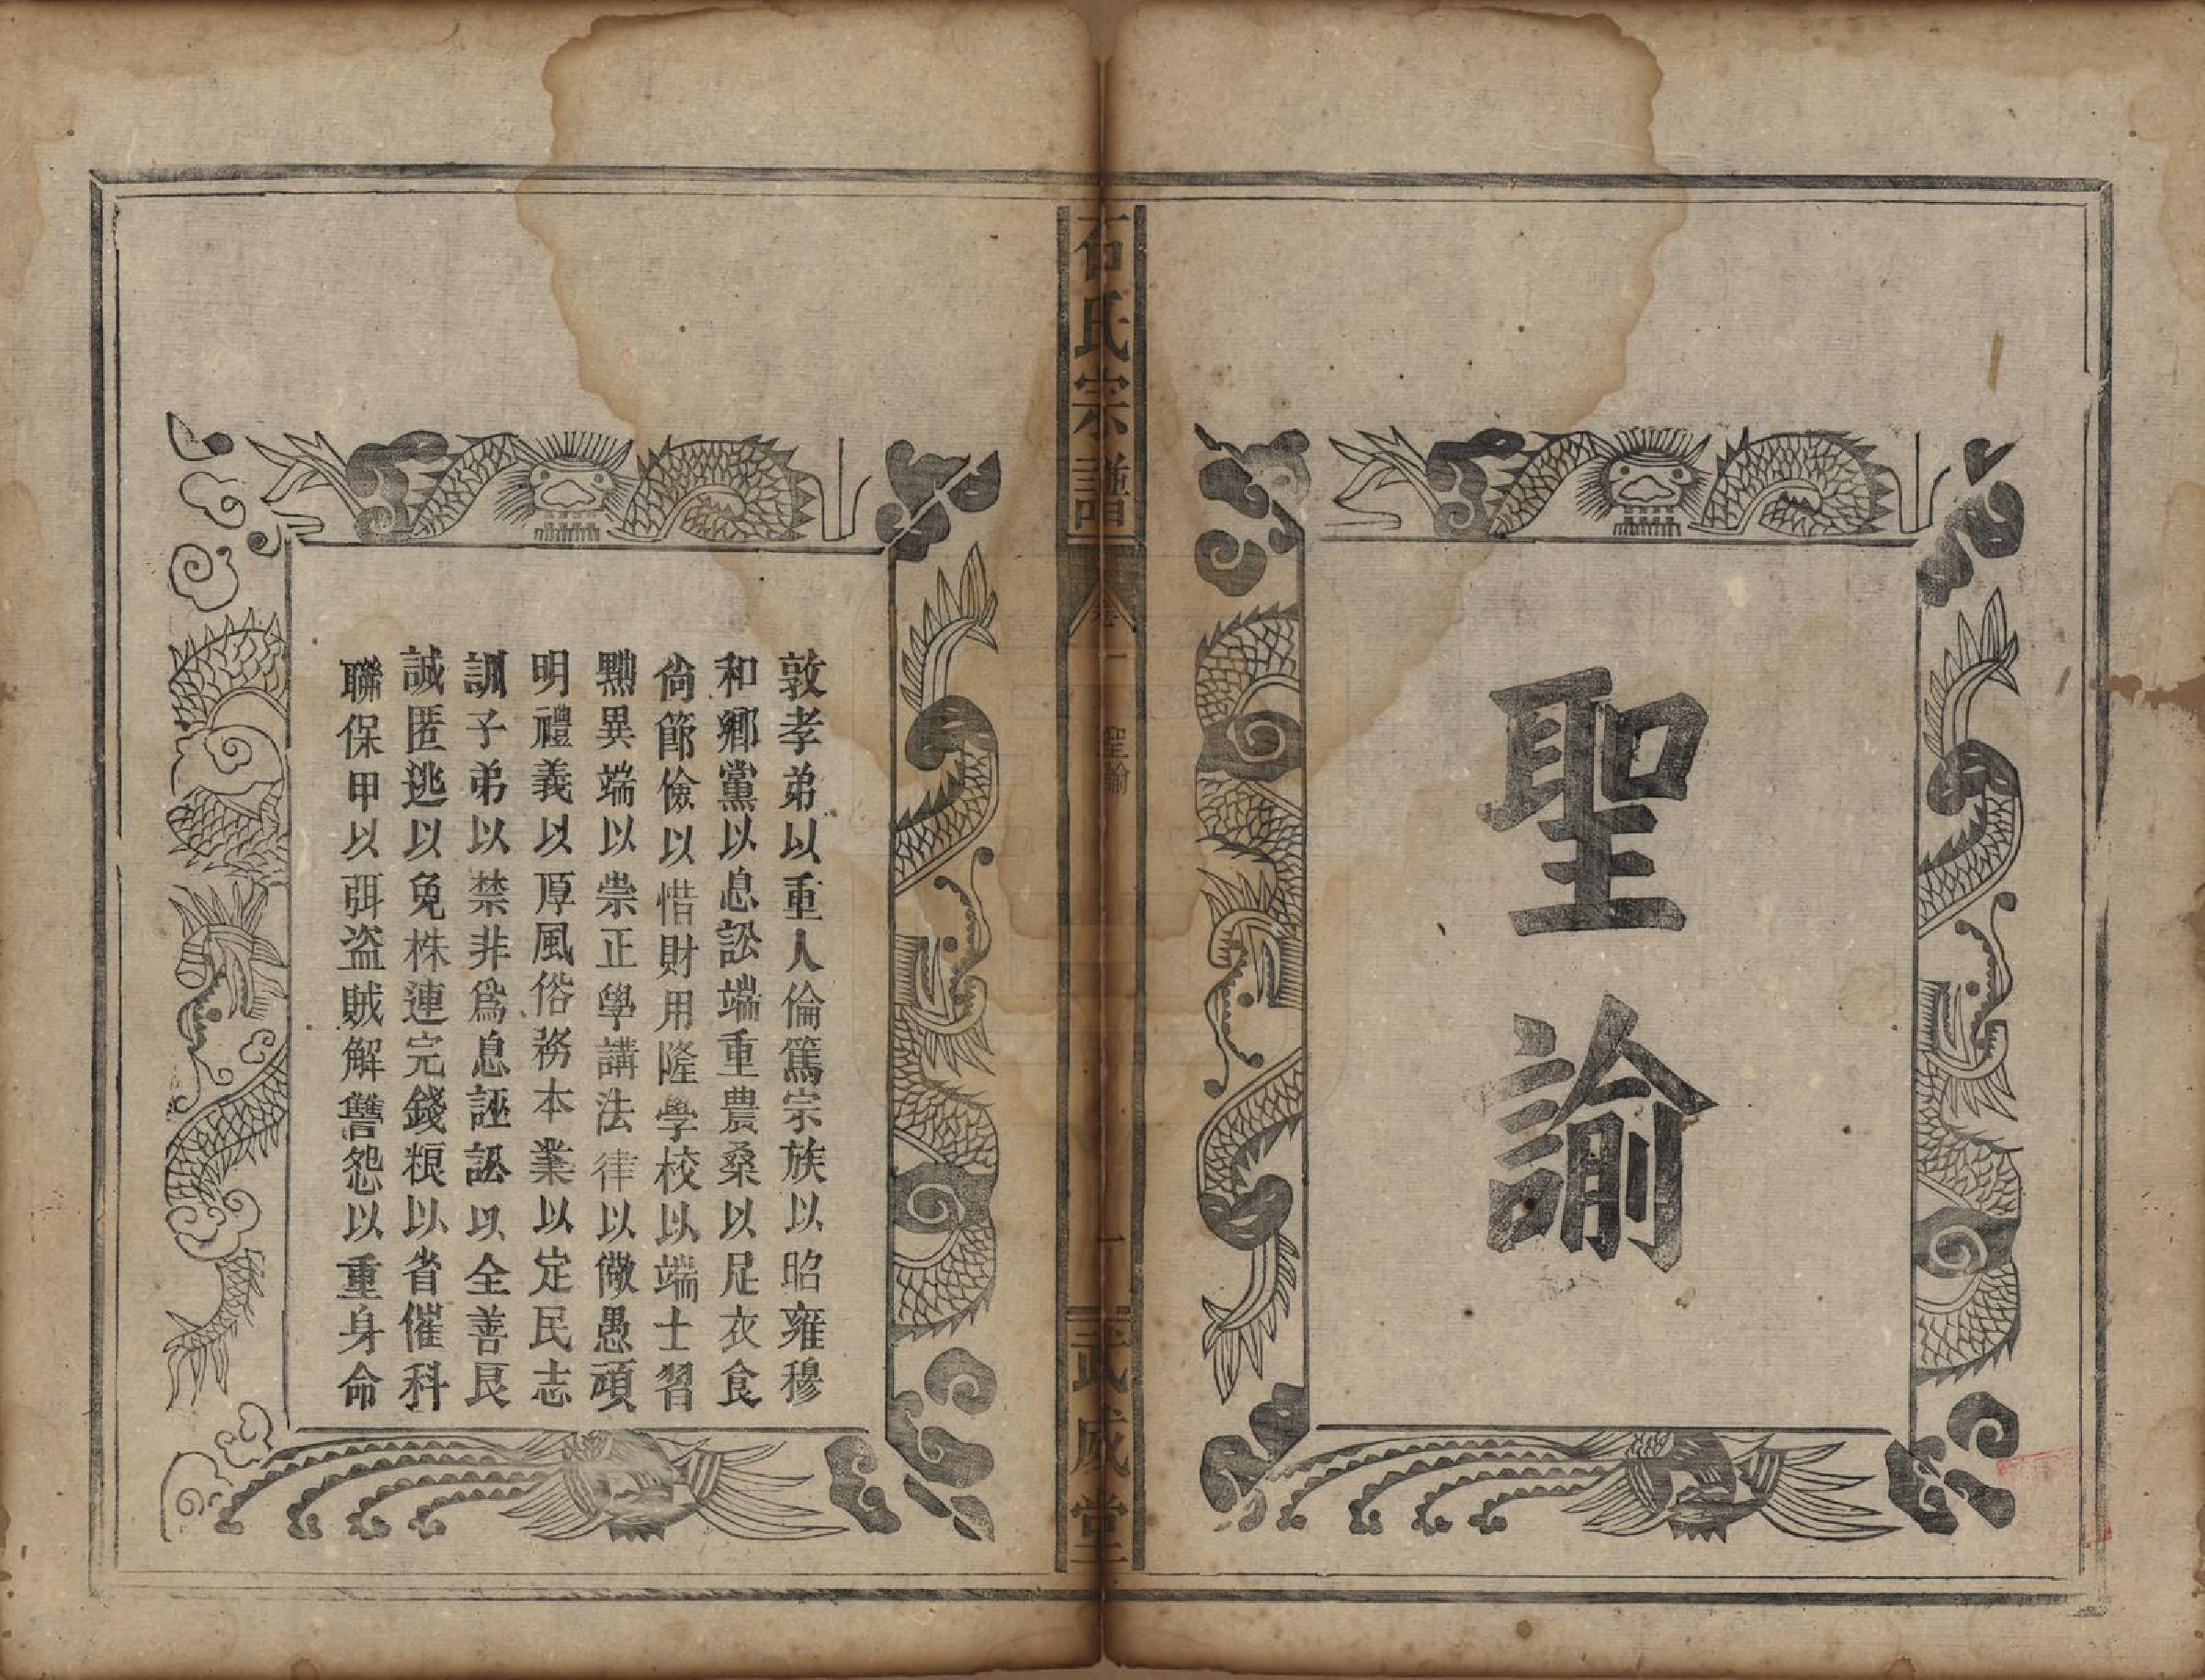 聖諭
石氏宗譜
卷一
聖諭
一
武威堂
敦孝弟以重人倫篤宗族以昭雍穆
和鄉黨以息訟端重農桑以足衣食
尙節儉以惜財用隆學校以端士習
黜異端以崇正學講法律以儆愚頑
明禮義以厚風俗務本業以定民志
訓子弟以禁非爲息誣訟以全善良
誡匿逃以免株連完錢粮以省催科
聯保甲以弭盜賊解讐怨以重身命